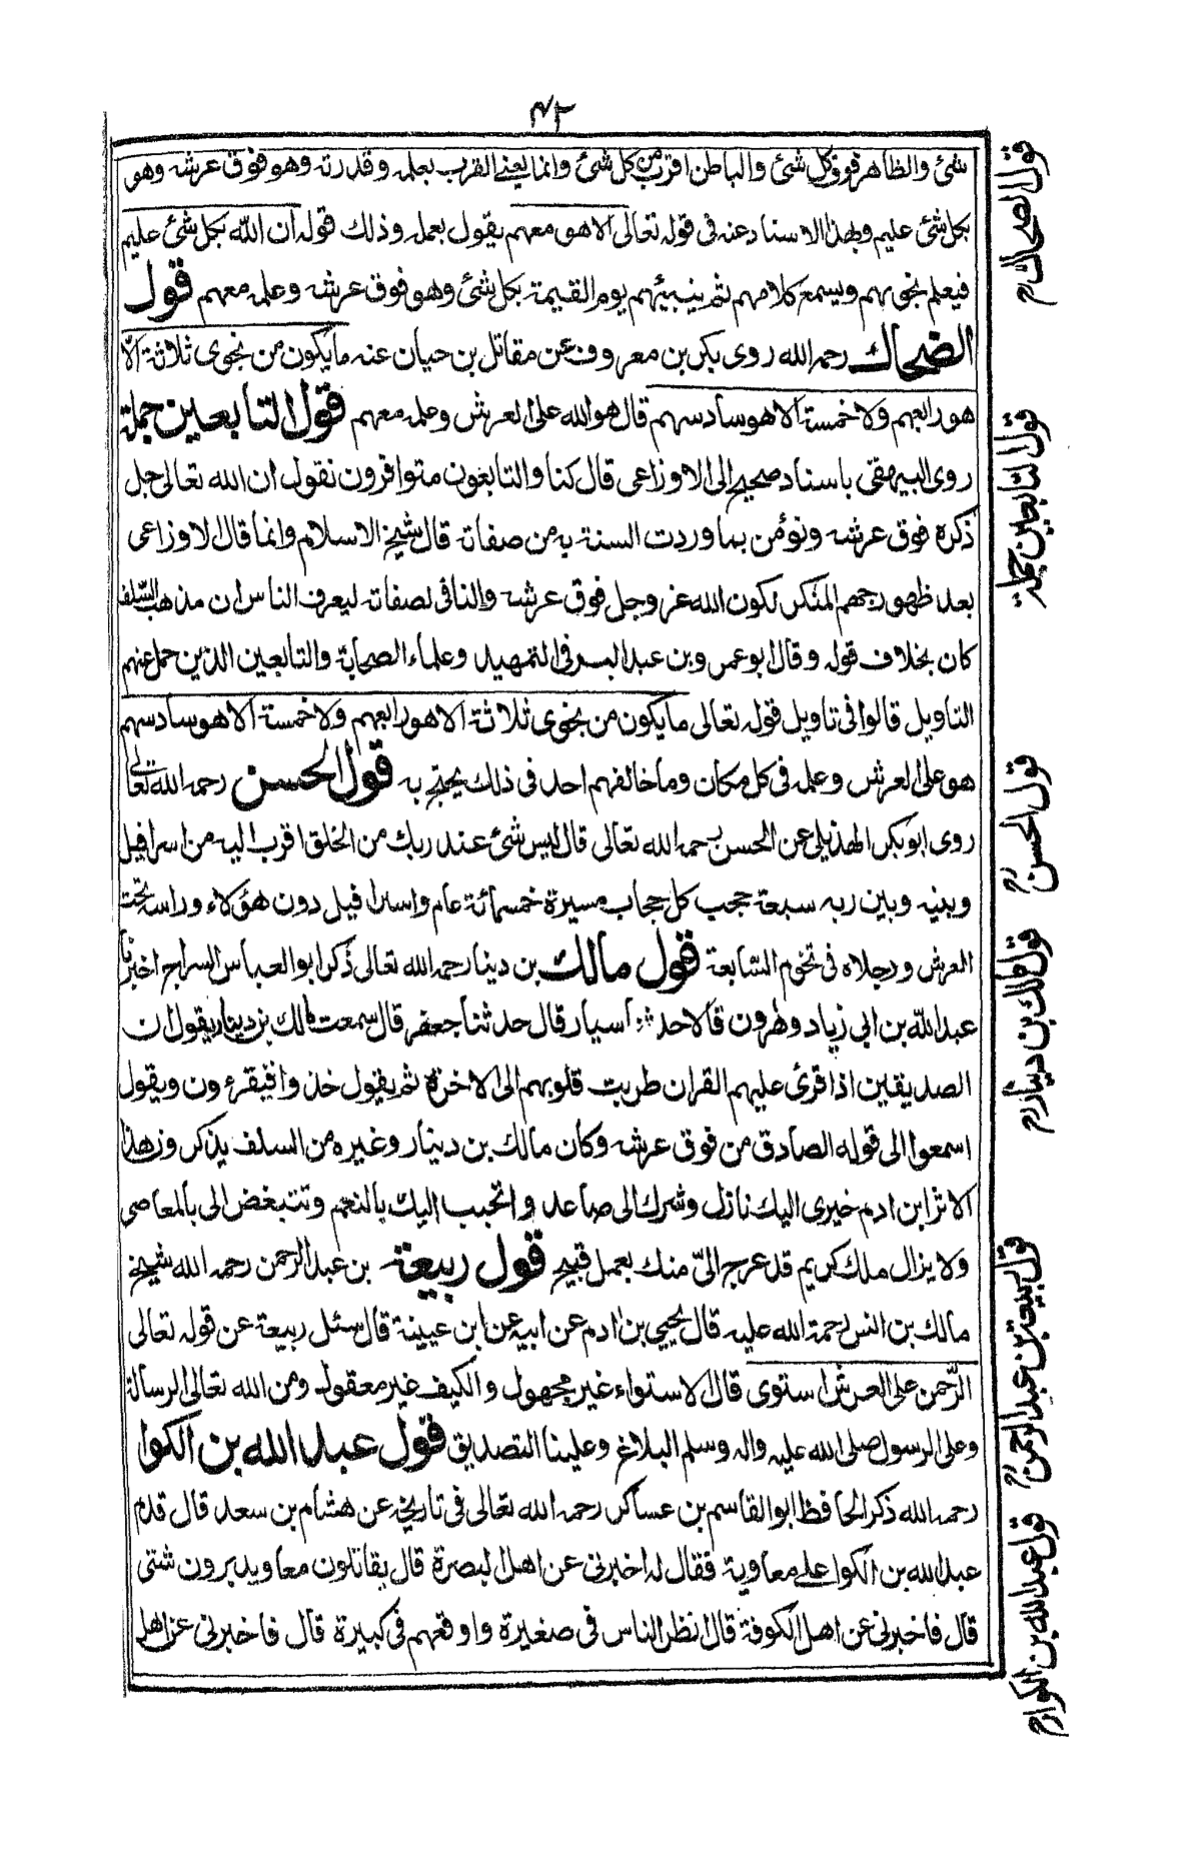 ٤٢
شئ والظاهر فوق كل شئ والباطن اقرب من كل شئ وانما يعنى القرب بعلمه وقدرته وهو فوق عرشه وهو
بكل شئ عليم وبهذا الاسناد عنه فى قوله تعالى الا هو معهم يقول بعلمه وذلك قوله ان الله بكل شئ عليم
فيعلم نجوىهم ويسمع كلامهم ثم ينبئهم يوم القيمة بكل شئ وهو فوق عرشه وعلمه معهم قول
الضحاك رحمه الله روى بكر بن معروف عن مقاتل بن حيان عنه ما يكون من نجوى ثلاثة الا
هو رابعهم ولا خمسة الا هو سادسهم قال هو الله على العرش وعلمه معهم قول التابعين جملة
روى البيهقى باسناد صحيح الى الاوزاعى قال كنا والتابعون متوافرون نقول ان الله تعالى جل
ذكره فوق عرشه ونؤمن بما وردت السنة به من صفاته قال شيخ الاسلام وانما قال الاوزاعى
بعد ظهور جهم المنكر لكون الله عز وجل فوق عرشه والنافى لصفاته ليعرف الناس ان مذهب السلف
كان بخلاف قوله وقال ابو عمر وبن عبد البر فى التمهيد وعلماء الصحابة والتابعين الذين حمل عنهم
التاويل قالوا فى تاويل قوله تعالى ما يكون من نجوى ثلاثة الا هو رابعهم ولا خمسة الا هو سادسهم
هو على العرش وعلمه فى كل مكان وما خالفهم احد فى ذلك يحتج به قول الحسن رحمه الله تعالى
روى ابو بكر الهذيلى عن الحسن رحمه الله تعالى قال ليس شئ عند ربك من الخلق اقرب اليه من اسرافيل
وبينه وبين ربه سبعة حجب كل حجاب مسيرة خمسمائة عام واسرافيل دون هؤلاء وراسه تحت
العرش ورجلاه فى تخوم السابعة قول مالك بن دينار رحمه الله تعالى ذكر ابو العباس السراج اخبرنا
عبد الله بن ابى زياد وهرون قالا حدثنا سيار قال حدثنا جعفر قال سمعت مالك بن دينار يقول ان
الصديقين اذا قرئ عليهم القران طربت قلوبهم الى الاخرة ثم يقول خذوا فيقرءون ويقول
اسمعوا الى قوله الصادق من فوق عرشه وكان مالك بن دينار وغيره من السلف يذكرون هذا
الاثر ابن ادم خيرى اليك نازل وشرك الى صاعد واتحبب اليك بالنعم وتتبغض الى بالمعاصى
ولا يزال ملك كريم قد عرج الىّ منك بعمل قبيح قول ربيعة بن عبد الرحمن رحمه الله شيخ
مالك بن انس رحمة الله عليه قال يحيى بن ادم عن ابيه عن ابن عيينة قال سئل ربيعة عن قوله تعالى
الرّحمن على العرش استوى قال الاستواء غير مجهول والكيف غير معقول ومن الله تعالى الرسالة
وعلى الرسول صلى الله عليه واله وسلم البلاغ وعلينا التصديق قول عبد الله بن الكوا
رحمه الله ذكر الحافظ ابو القاسم بن عساكر رحمه الله تعالى فى تاريخه عن هشام بن سعد قال قدم
عبد الله بن الكوا على معاوية فقال له اخبرنى عن اهل البصرة قال يقاتلون معا ويدبرون شتى
قال فاخبرنى عن اهل الكوفة قال انظر الناس فى صغيرة واوقعهم فى كبيرة قال فاخبرنى عن اهل
قول الضحاك رح
قول التابعين جملة
قول الحسن رح
قول مالك بن دينار رح
قول ربيعة بن عبد الرحمن رح
قول عبد الله بن الكوا رح